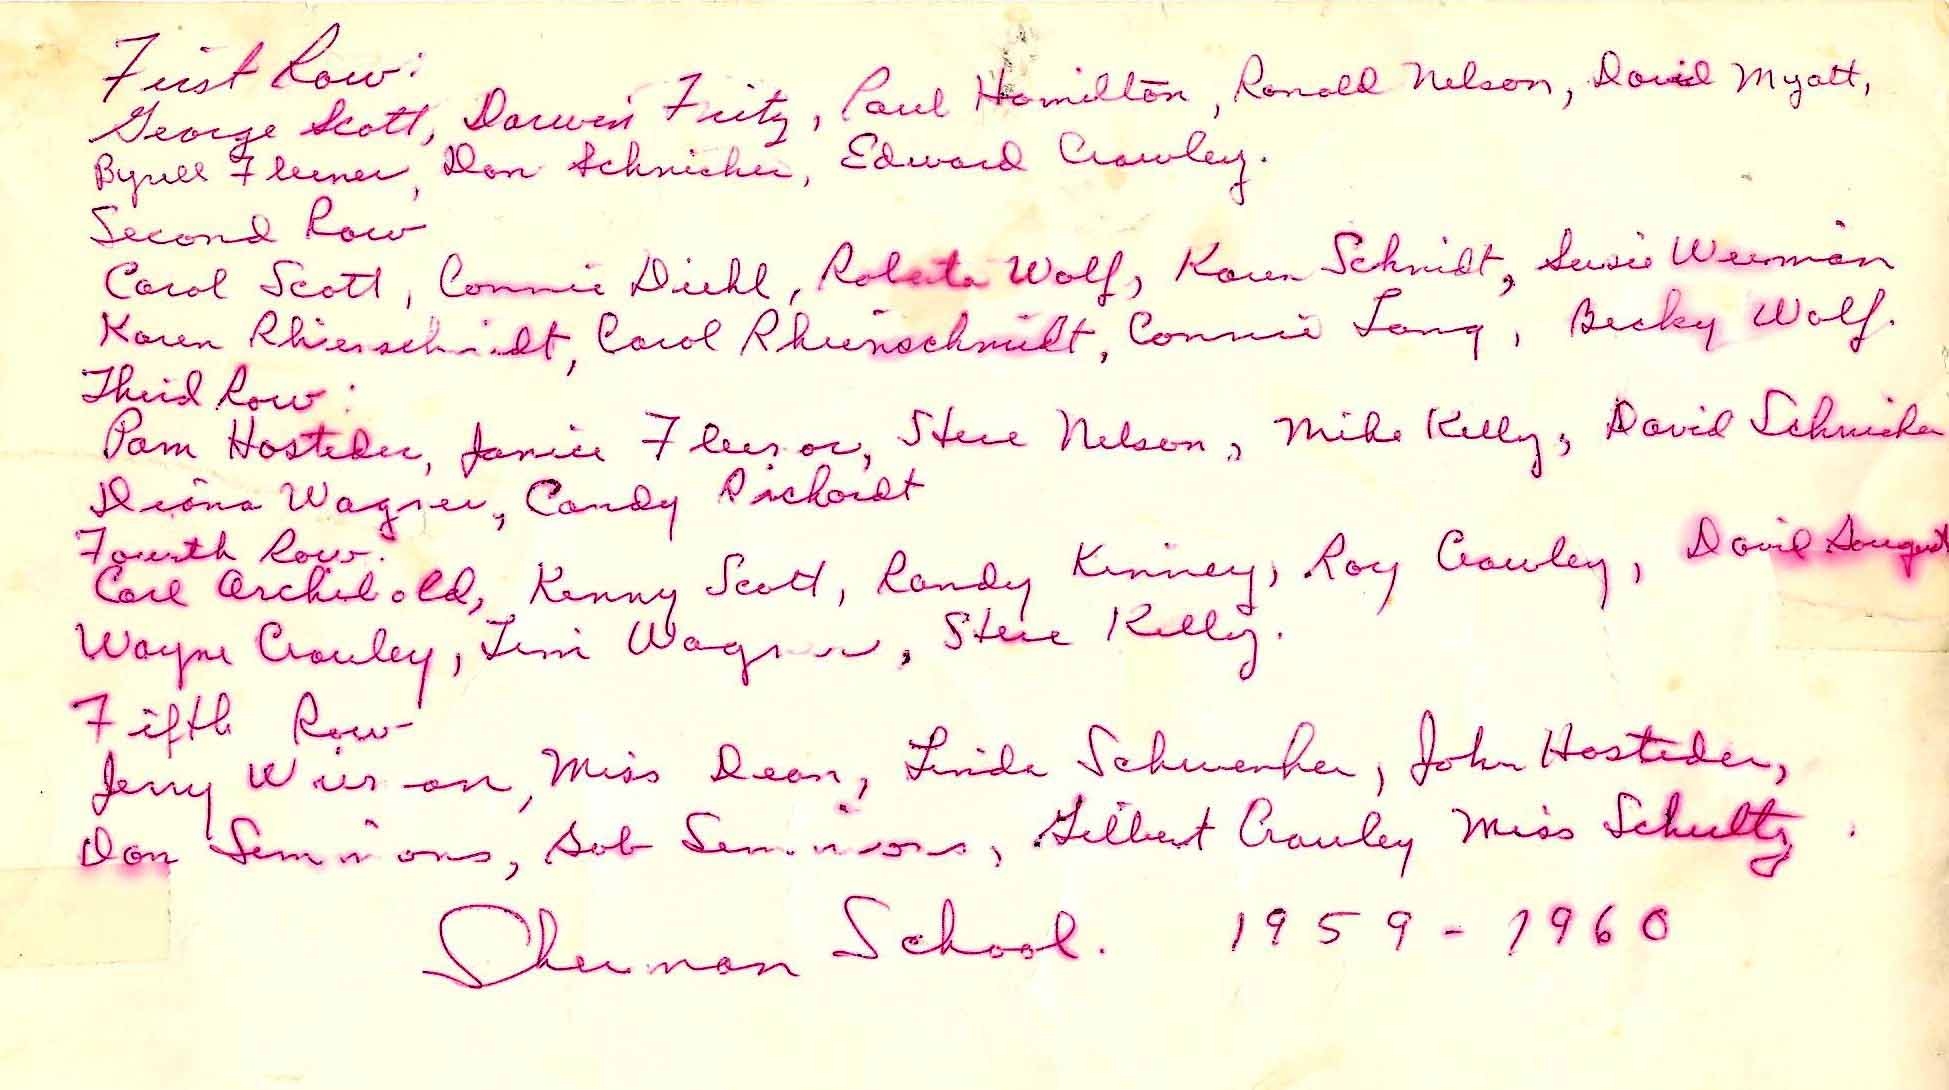 First Row:
George Scott, Darwin Fritz, Paul Hamilton, Ronald Nelson, David Myatt,
Byrell Fleener, Don Schnicker, Edward Crawley.
Second Row
Carol Scott, Connie Diehl, Roberta Wolf, Karen Schmidt, Susie
Karen Rhienschmidt, Carol Rheinschmidt, Connie Lang, Becky Wolf.
Third Row:
Pam Hosteder, Janice Fleenor, Steve Nelson, Mike Kelly, David Schnicker
Diana Wagner, Candy
Fourth Row.
Carl Archibald, Kenny Scott, Randy Kinney, Roy Crawley, David
Wayne Crawley, Tim Wagner, Steve Kelly.
Fifth Row
Jerry Miss Dean, Linda Schwenker, John Hosteder,
Don Simmons, Bob Simmons, Gilbert Crawley Miss Schultz.
Sherman School. 1959-1960